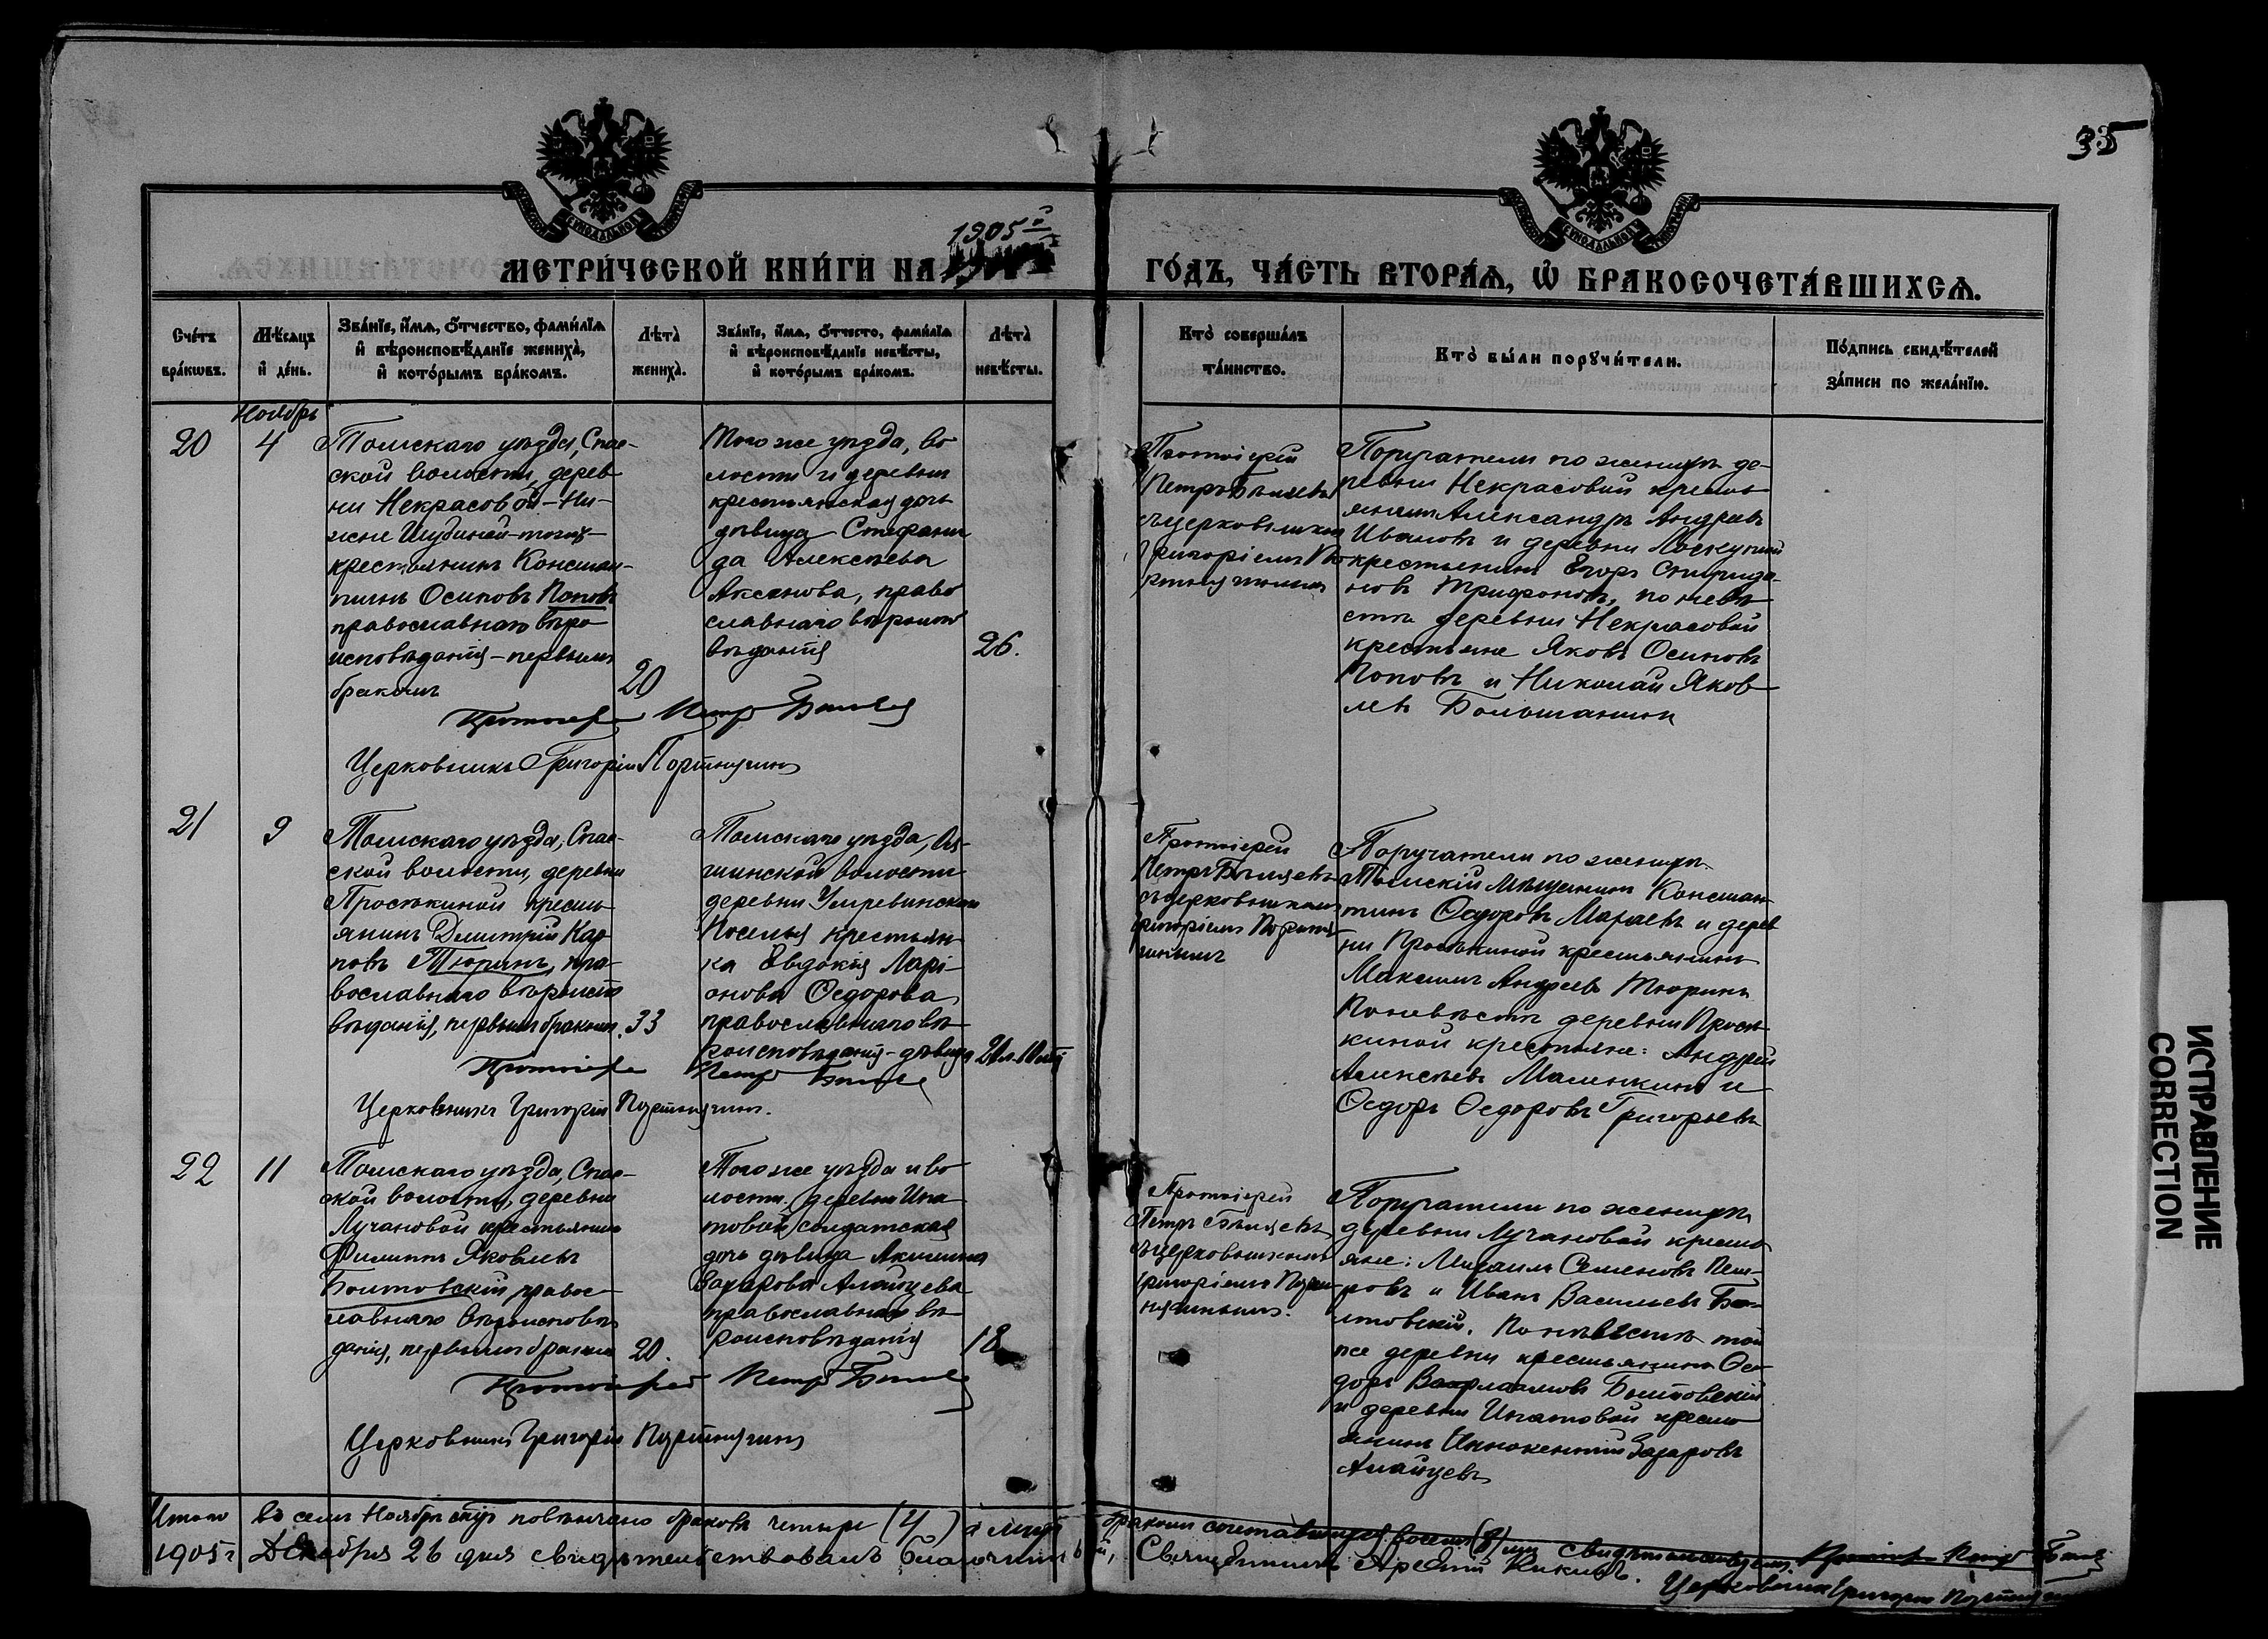 35
1905й
МЕТРИ́ЧЕСКОЙ КНИ́ГИ НА
ГО́ДЪ, ЧА́СТЬ ВТОРА́Ѧ, Ѿ БРАКОСОЧЕТА́ВШИХСѦ.
Сче́тъ
бра́кѡвъ.
Мѣ́сѧцъ
и҆ де́нь.
Зва́нїе, и҆́мѧ, ѻ҆́тчество, фами́лїѧ
и҆ вѣроисповѣ́данїе женихà,
и҆ кото́рымъ бра́комъ.
Лѣтà
женихà.
Зва́нїе, и҆́мѧ, ѻ҆́тчесто, фами́лїѧ
и҆ вѣроисповѣ́данїе невѣ́сты,
и҆ кото́рымъ бра́комъ.
Лѣтà
невѣ́сты.
Кто̀ соверша́лъ
та́инство.
Кто̀ бы́ли порꙋчи́тели.
По́дпись свидѣ́телей
за́писи по жела́нїю.
Ноябрь
20
4
Томскаго уѣзда, Спас-
ской волости, дерев-
ни Некрасовой-Ни-
жне Шубиной-тожъ-
крестьянинъ Констан-
тинъ Осиповъ Поповъ
православнаго вѣро-
исповѣданія-первымъ
бракомъ
20
Того же уѣзда, во
лости и деревни
крестьянская дочь
дѣвица Стефани
да Алексѣева
Аксенова, право
славнаго вѣроиспо
вѣданія
26.
Протоіерей
Петръ
съ церковникомъ
Григоріемъ
Поручатели по женихѣ де-
ревни Некрасовой кресть
янинъ Александръ Андреевъ
Ивановъ и деревни Лоскутной
крестьянинъ Егоръ Спиридо-
новъ Трифоновъ, по невѣ-
стѣ деревни Некрасовой
крестьяне Яковъ Осиповъ
Поповъ и Николай Яков-
левъ Большанинъ
Протоіерей Петръ
Церковникъ Григорій Портнягинъ
21
9
Томскаго уѣзда, Спас-
ской волости, деревни
Просѣкиной кресть-
янинъ Димитрій Кар-
повъ Тюринъ, пра-
вославнаго вѣроиспо
вѣданія, первымъ бракомъ.
33
Томскаго уѣзда, Оя-
шинской волости
деревни Умревинской
Поселья крестьян-
ка Евдокія Ларі-
онова Ѳедорова
православнаго вѣ-
роисповѣданія-дѣвица
Протоіерей
Петръ
съ церковникомъ
Григоріемъ Портня-
гинымъ
Поручатели по женихѣ
Томскій мѣщанинъ Констан-
тинъ Ѳедоровъ Мараевъ и дерев
ни Просѣкиной крестьянинъ
Максимъ Андреевъ Тюринъ
По невѣстѣ деревни Просѣ-
киной крестьяне: Андрей
Алексѣевъ Маленкинъ и
Ѳедоръ Ѳедоровъ Григорьевъ
Протоіерей Петръ
Церковникъ Григорій Портнягинъ.
22
11
Томскаго уѣзда, Спас-
ской волости, деревни
Лучановой крестьянинъ
Филиппъ Яковлевъ
Болтовскій, правос-
лавнаго вѣроисповѣ
данія, первымъ бракомъ
20.
Того же уѣзда и во
лости. деревни Ипа
товой, солдатская
дочь дѣвица Акилина
Захарова Алайцева
православнаго вѣ-
роисповѣданія
18
Протоіерей
Петръ
съ церковникомъ
Григоріемъ Порт-
нягинымъ.
Поручатели по женихѣ
деревни Лучановой кресть
яне: Михаилъ Семеновъ Пет-
ровъ и Иванъ Васильевъ Бол-
товскій. По невѣстѣ той
же деревни крестьянинъ Ѳе-
доръ Варлаамовъ Болтовскій
и деревни Ипатовой кресть
янинъ Иннокентій Захаровъ
Алайцевъ
Протоіерей Петръ
Церковникъ Григорій Портнягинъ
Итого въ семъ Ноябрѣ мѣс. повѣнчано браковъ четыре (4) а лицъ бракомъ сочетавшихся восемь (8) свидѣтельствуемъ Протоіерей Петръ
1905 г Декабря 26 дня свидѣтельствовалъ благочинный, Священникъ Арсеній Кикинъ.
Церковникъ Григорій Портнягинъ
ИСПРАВЛЕНИЕ
CORRECTION